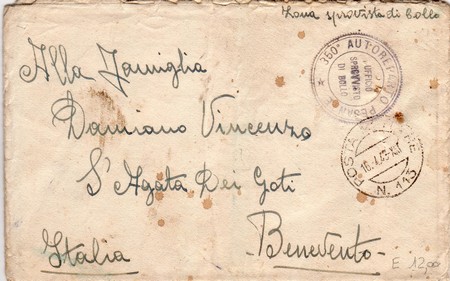 Zona sprovvista di bollo
360° AUTOREPARTO PESANTE
UFFICIO
SPROVVISTO
DI BOLLO
Alla Famiglia
Damiano Vincenzo
S'Agata Dei Goti
Italia
Benevento
POSTA MILITARE
N. 113
E 12,00